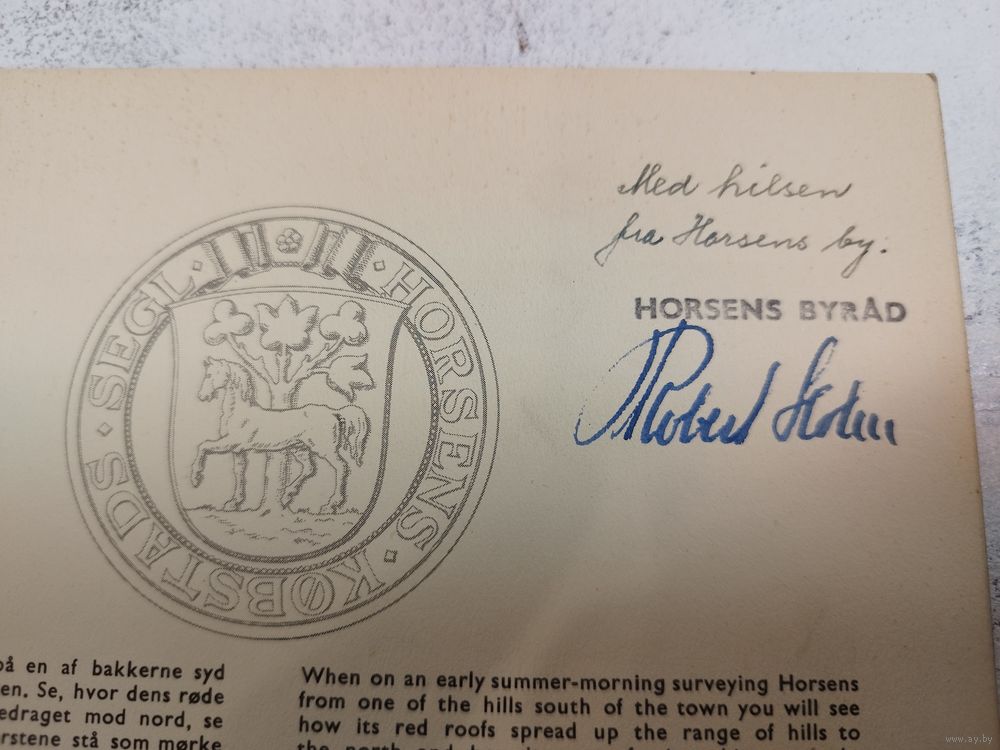 Med hilsen
fra Horsens by.
HORSENS BYRÅD
Robert Holm
HORSENS · KØBSTADS · SEGL ·
på en af bakkerne syd
en. Se, hvor dens røde
edraget mod nord, se
rstene stå som mørke
When on an early summer-morning surveying Horsens
from one of the hills south of the town you will see
how its red roofs spread up the range of hills to
the north and
www.ay.by